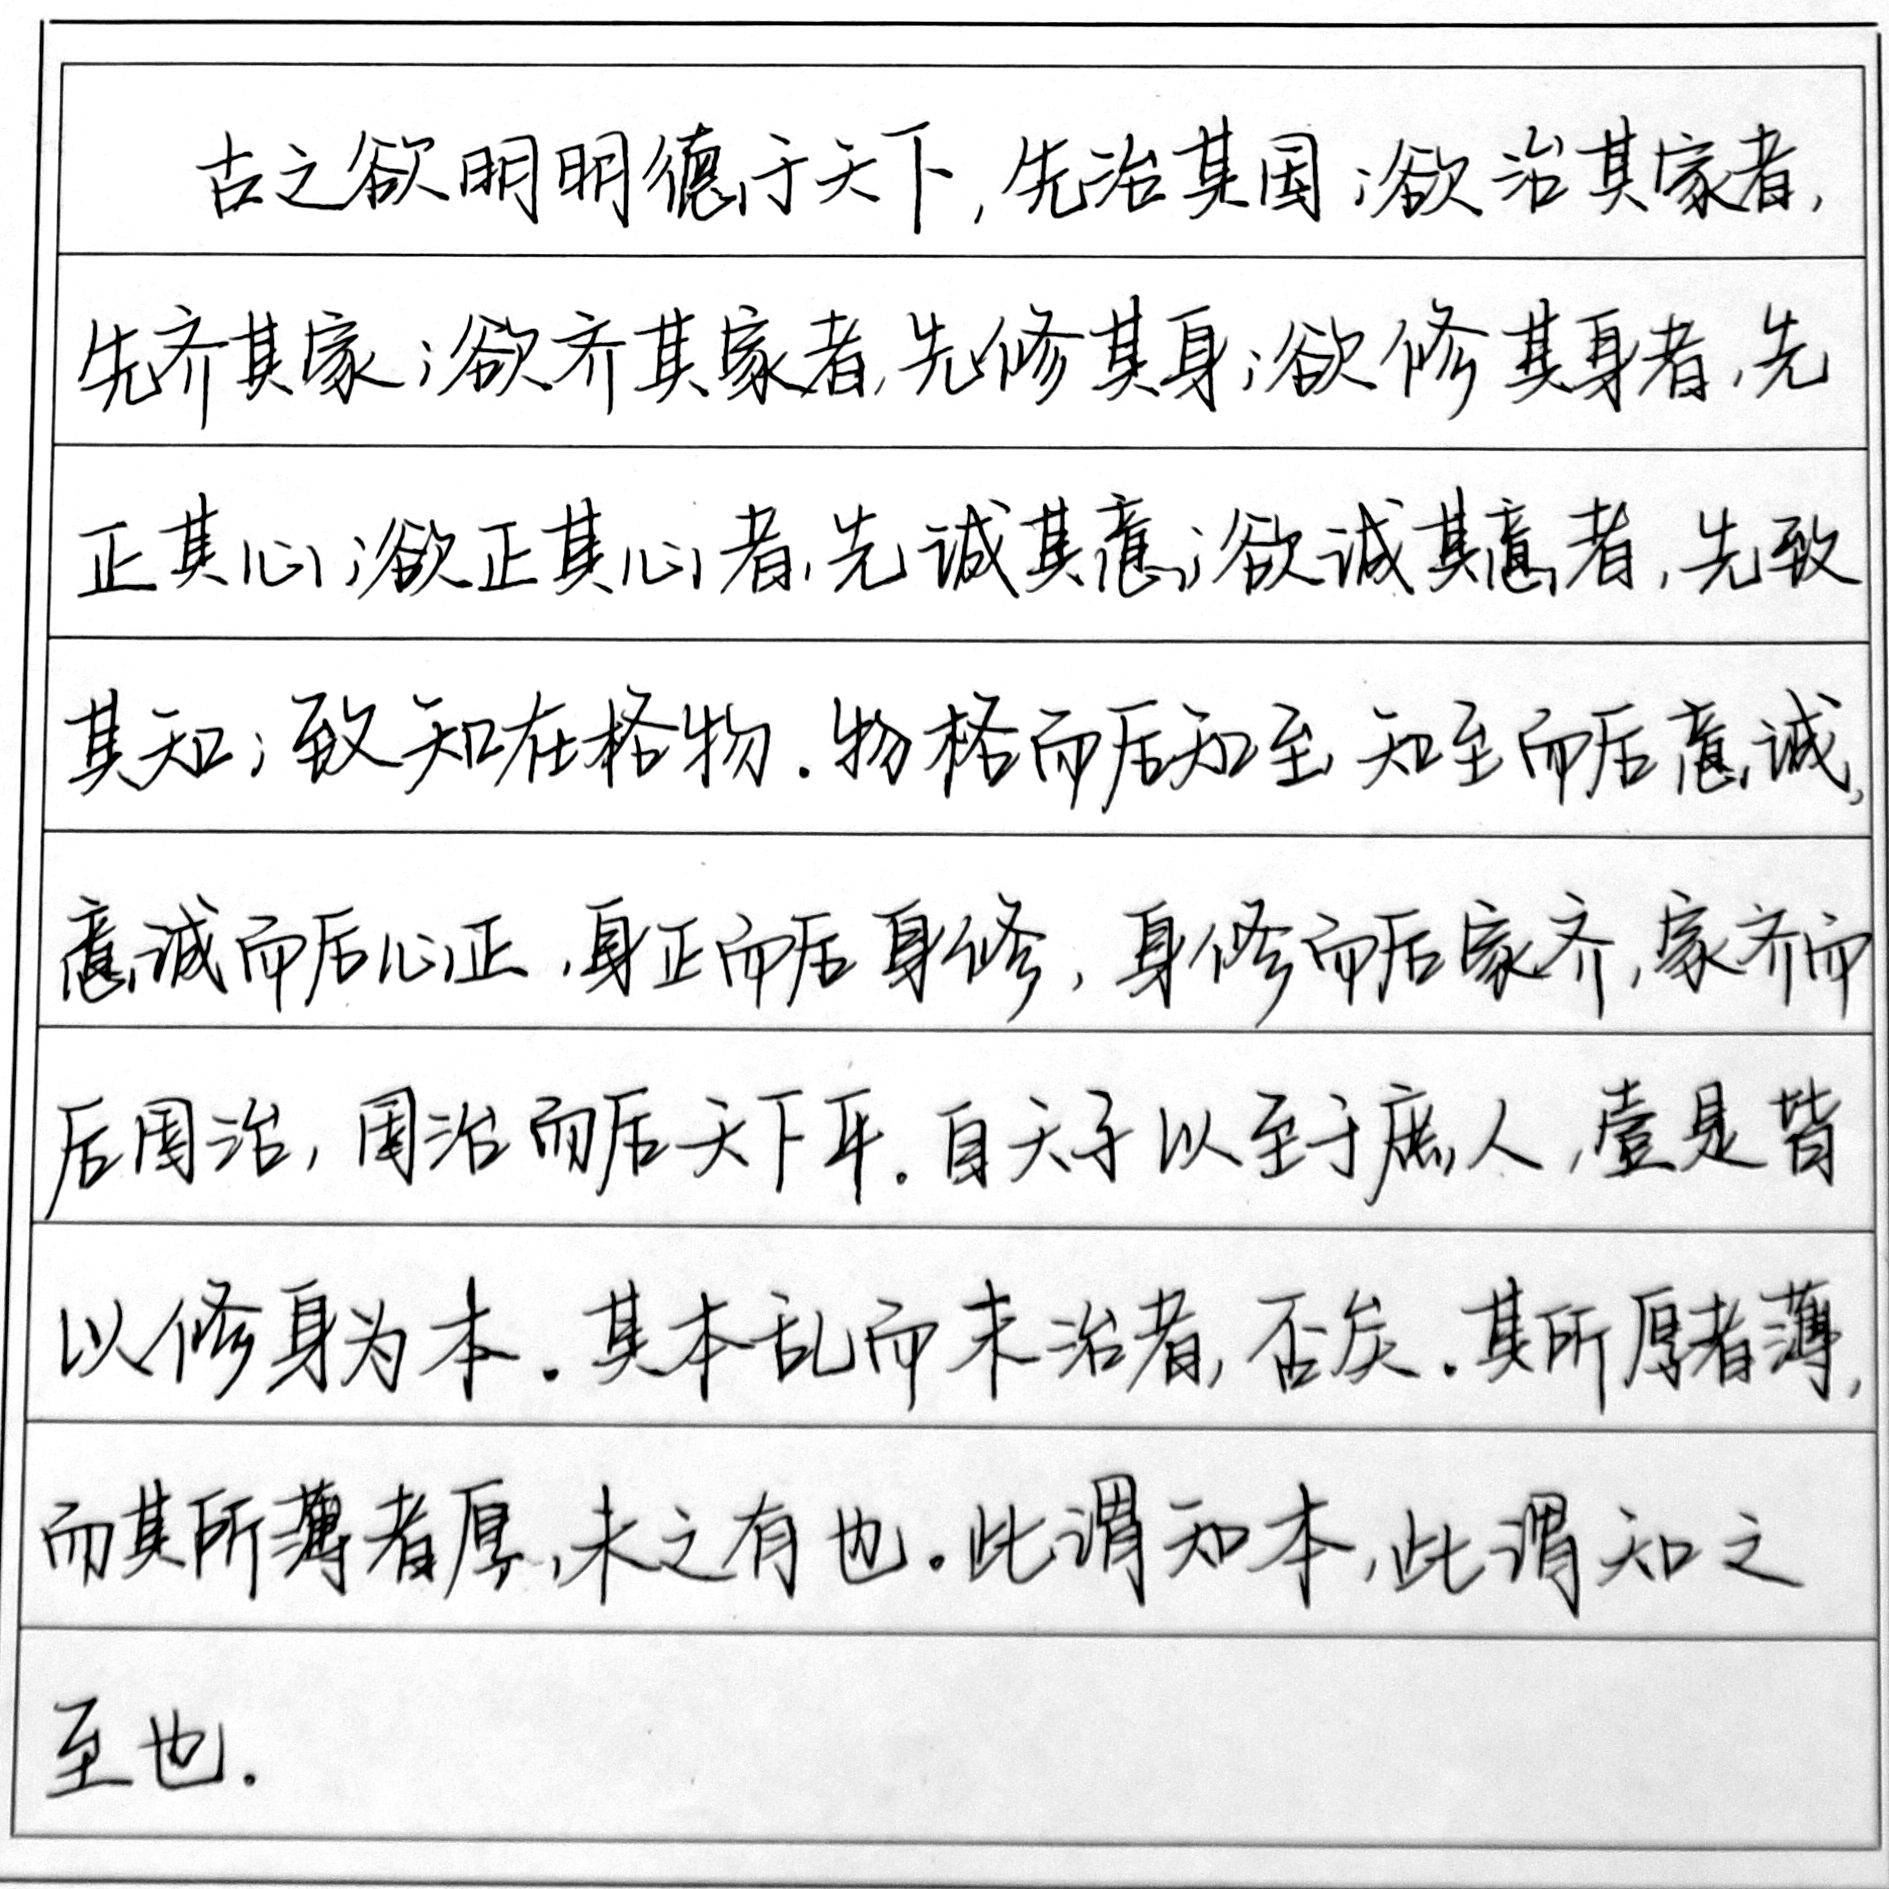 古之欲明明德于天下,先治其国;欲治其家者,
先齐其家;欲齐其家者,先修其身;欲修其身者,先
正其心;欲正其心者,先诚其意;欲诚其意者,先致
其知;致知在格物.物格而后知至,知至而后意诚,
意诚而后心正,身正而后身修,身修而后家齐,家齐而
后国治,国治而后天下平.自天子以至于庶人,壹是皆
以修身为本.其本乱而末治者,否矣.其所厚者薄,
而其所薄者厚,未之有也.此谓知本,此谓知之
至也.